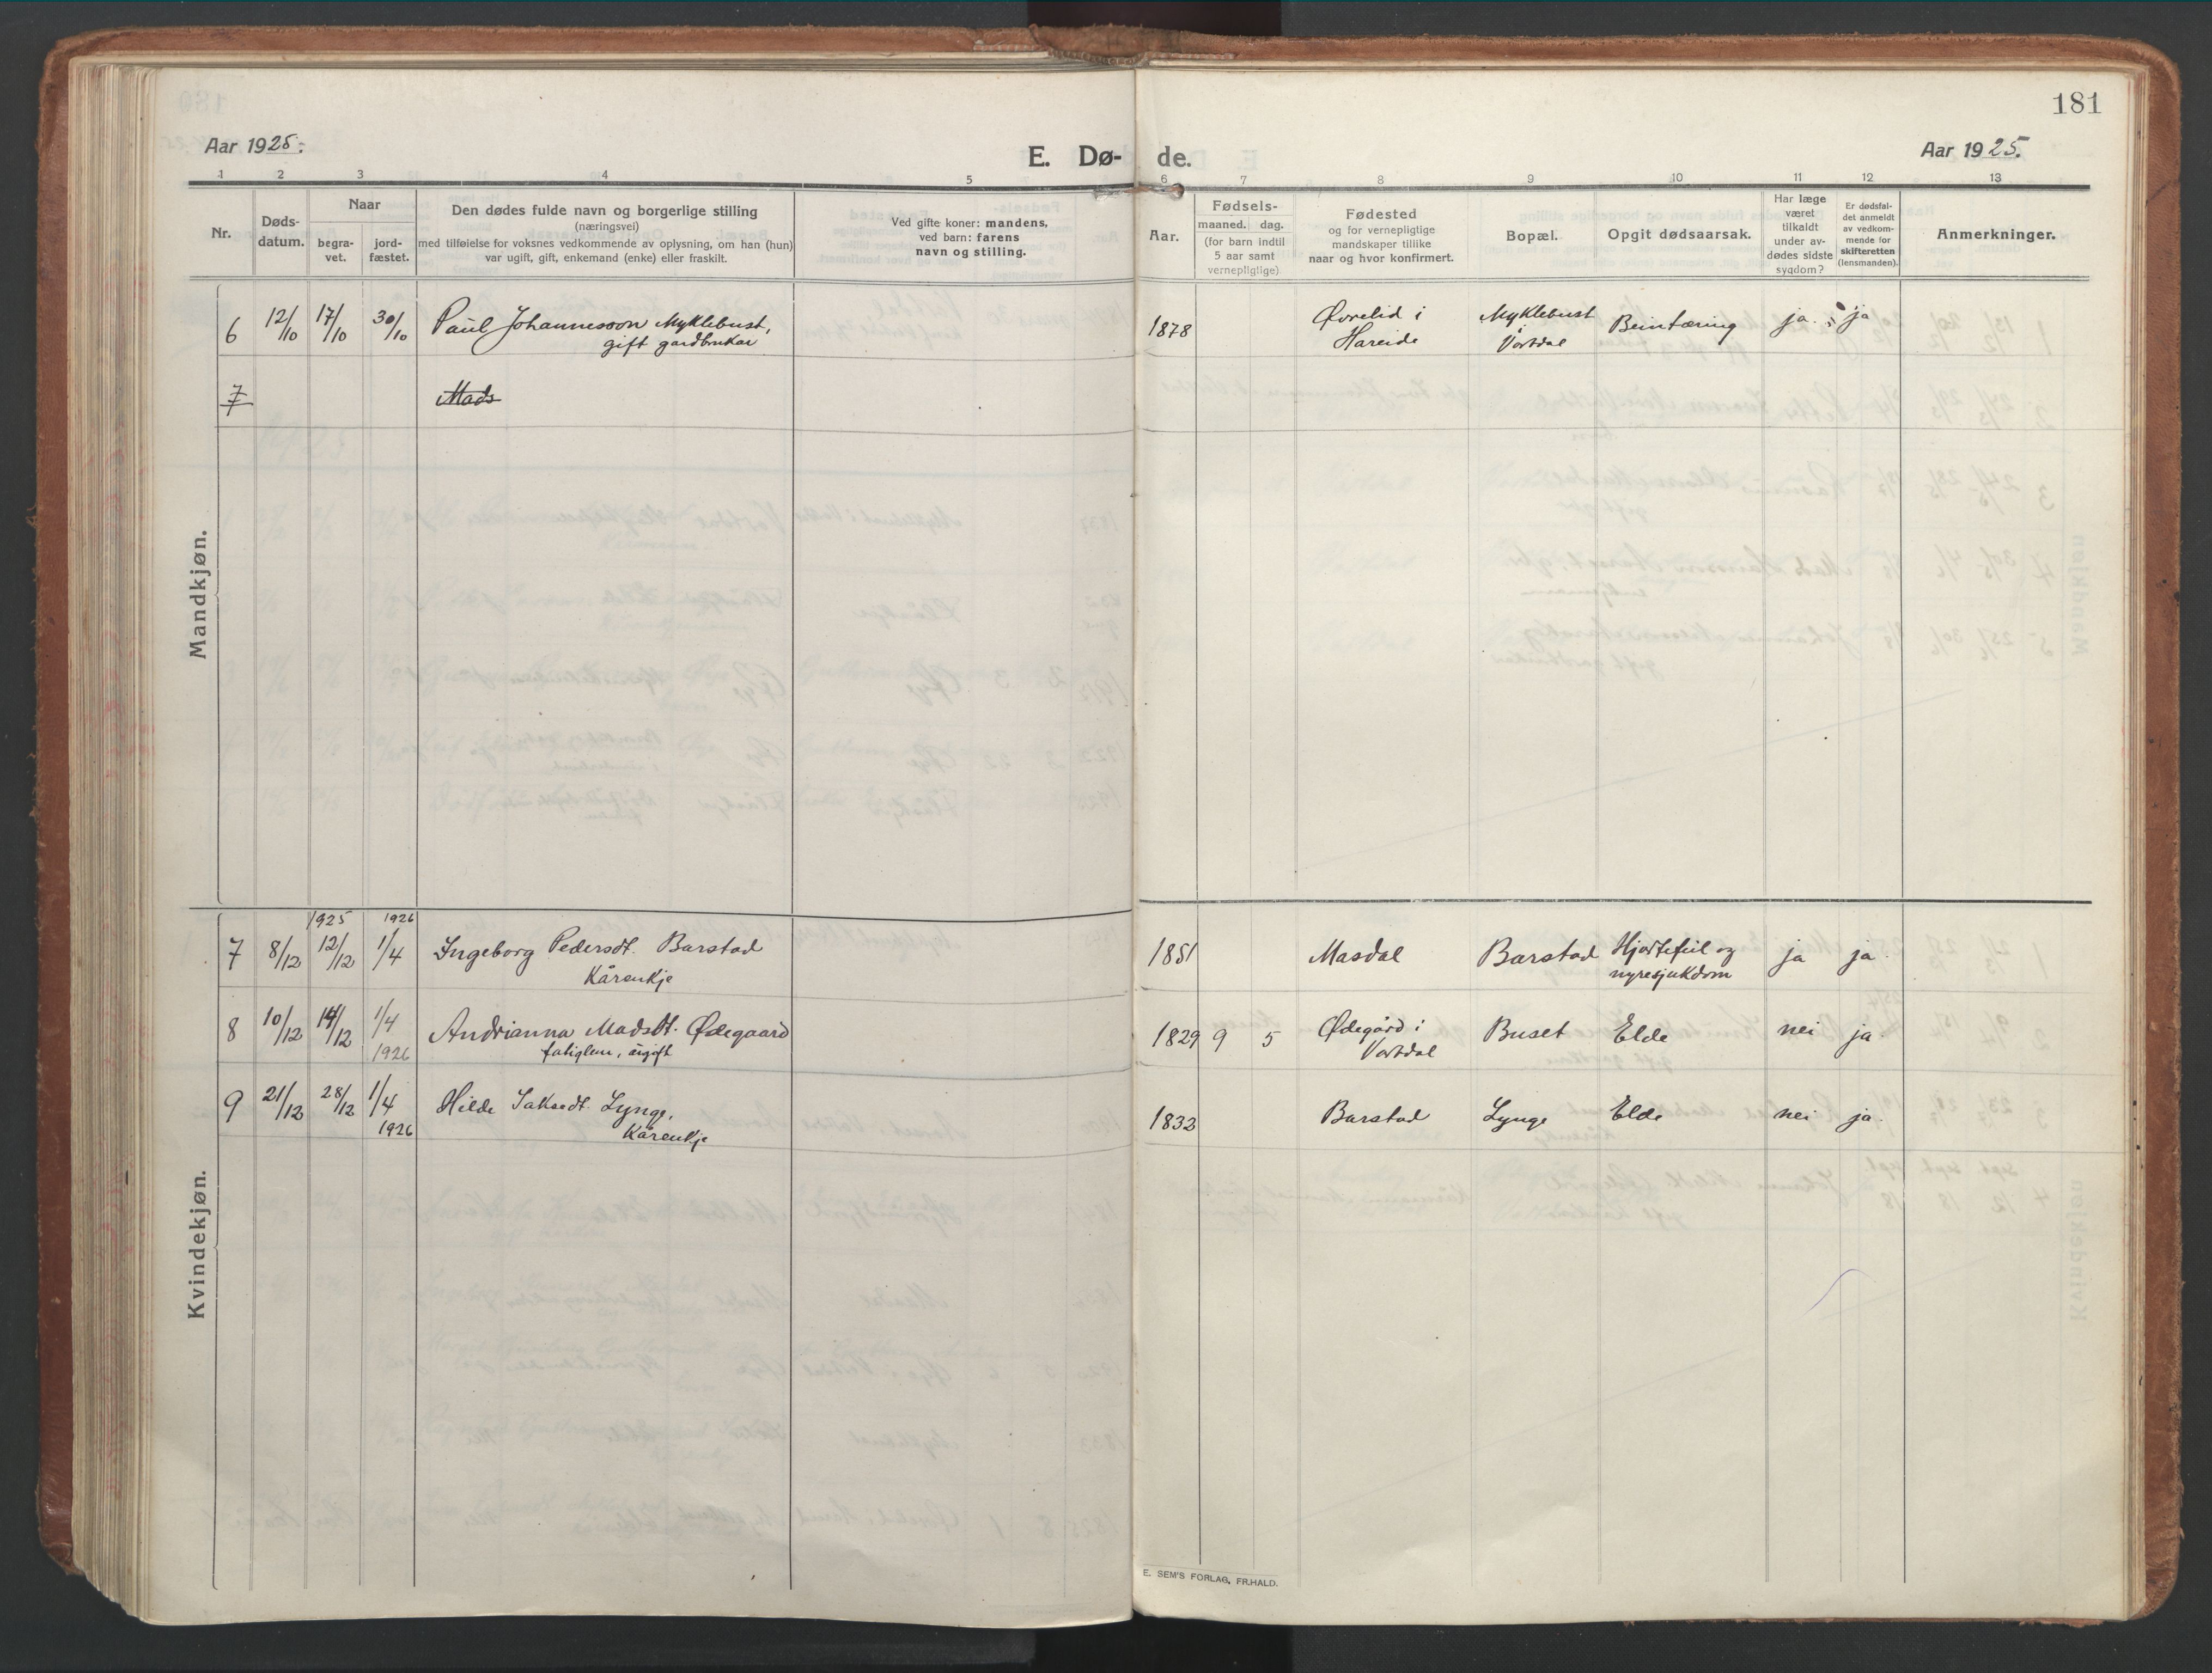 181
Aar 1925.
E. Dø- de.
Aar 1925.
1 2 3 4 5 6 7 8 9 10 11 12 13
Nr.
Døds-
datum.
Naar
begra-
vet.
jord-
fæstet.
Den dødes fulde navn og borgerlige stilling
(næringsvei)
med tilføielse for voksnes vedkommende av oplysning, om han (hun)
var ugift, gift, enkemand (enke) eller fraskilt.
Ved gifte koner: mandens,
ved barn: farens
navn og stilling.
Aar.
Fødsels-
maaned. dag.
(for barn indtil
5 aar samt
vernepligtige)
Fødested
og for vernepligtige
mandskaper tillike
naar og hvor konfirmert.
Bopæl.
Opgit dødsaarsak.
Har læge
været
tilkaldt
under av-
dødes sidste
sygdom?
Er dødsfal-
det anmeldt
av vedkom-
mende for
skifteretten
(lensmanden).
Anmerkninger.
Mandkjøn.
6 12/10 17/10 30/10 Paul Johannesson Myklebust,
gift gardbrukar
1878 Øvrelid i
Hareide
Myklebust
i
Vartdal
Beintæring ja. ja
7 Mads
Kvindekjøn.
1925 1926
7 8/12 12/12 1/4 Ingeborg Pedersdt. Barstad
Kårenkje
1851 Masdal Barstad Hjartefeil og
nyresjukdom
ja ja.
8 10/12 14/12 1/4
1926
Andrianna Madsdt. Ødegaard
fatiglem, ugift
1829 9 5 Ødegård i
Vartdal
Buset Elde nei ja.
9 21/12 28/12 1/4
1926
Hilde Saksedt. Lynge,
Kårenkje
1832 Barstad Lynge Elde nei ja.
E. SEM'S FORLAG, FR.HALD.